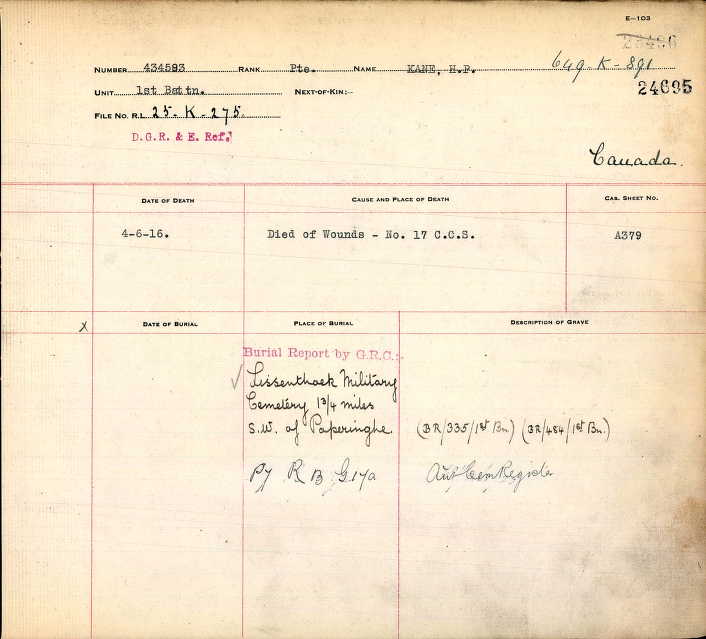 E—103
23486
NUMBER 434593 RANK Pte. NAME KANE, H.P. 649-K-891
UNIT 1st Battn. NEXT-OF-KIN:— 24695
FILE No. R.L. 25-K-275.
D.G.R. & E. Ref.
Canada.
DATE OF DEATH CAUSE AND PLACE OF DEATH CAS. SHEET No.
4-6-16. Died of Wounds - No. 17 C.C.S. A379
X DATE OF BURIAL PLACE OF BURIAL DESCRIPTION OF GRAVE
Burial Report by G.R.C.:-
Lissenthoek Military
Cemetery 1 3/4 miles
S.W. of Paperinghe. (BR/335/1st Bn.) (BR/484/1st Bn.)
R B G 17a Aut Cem Register